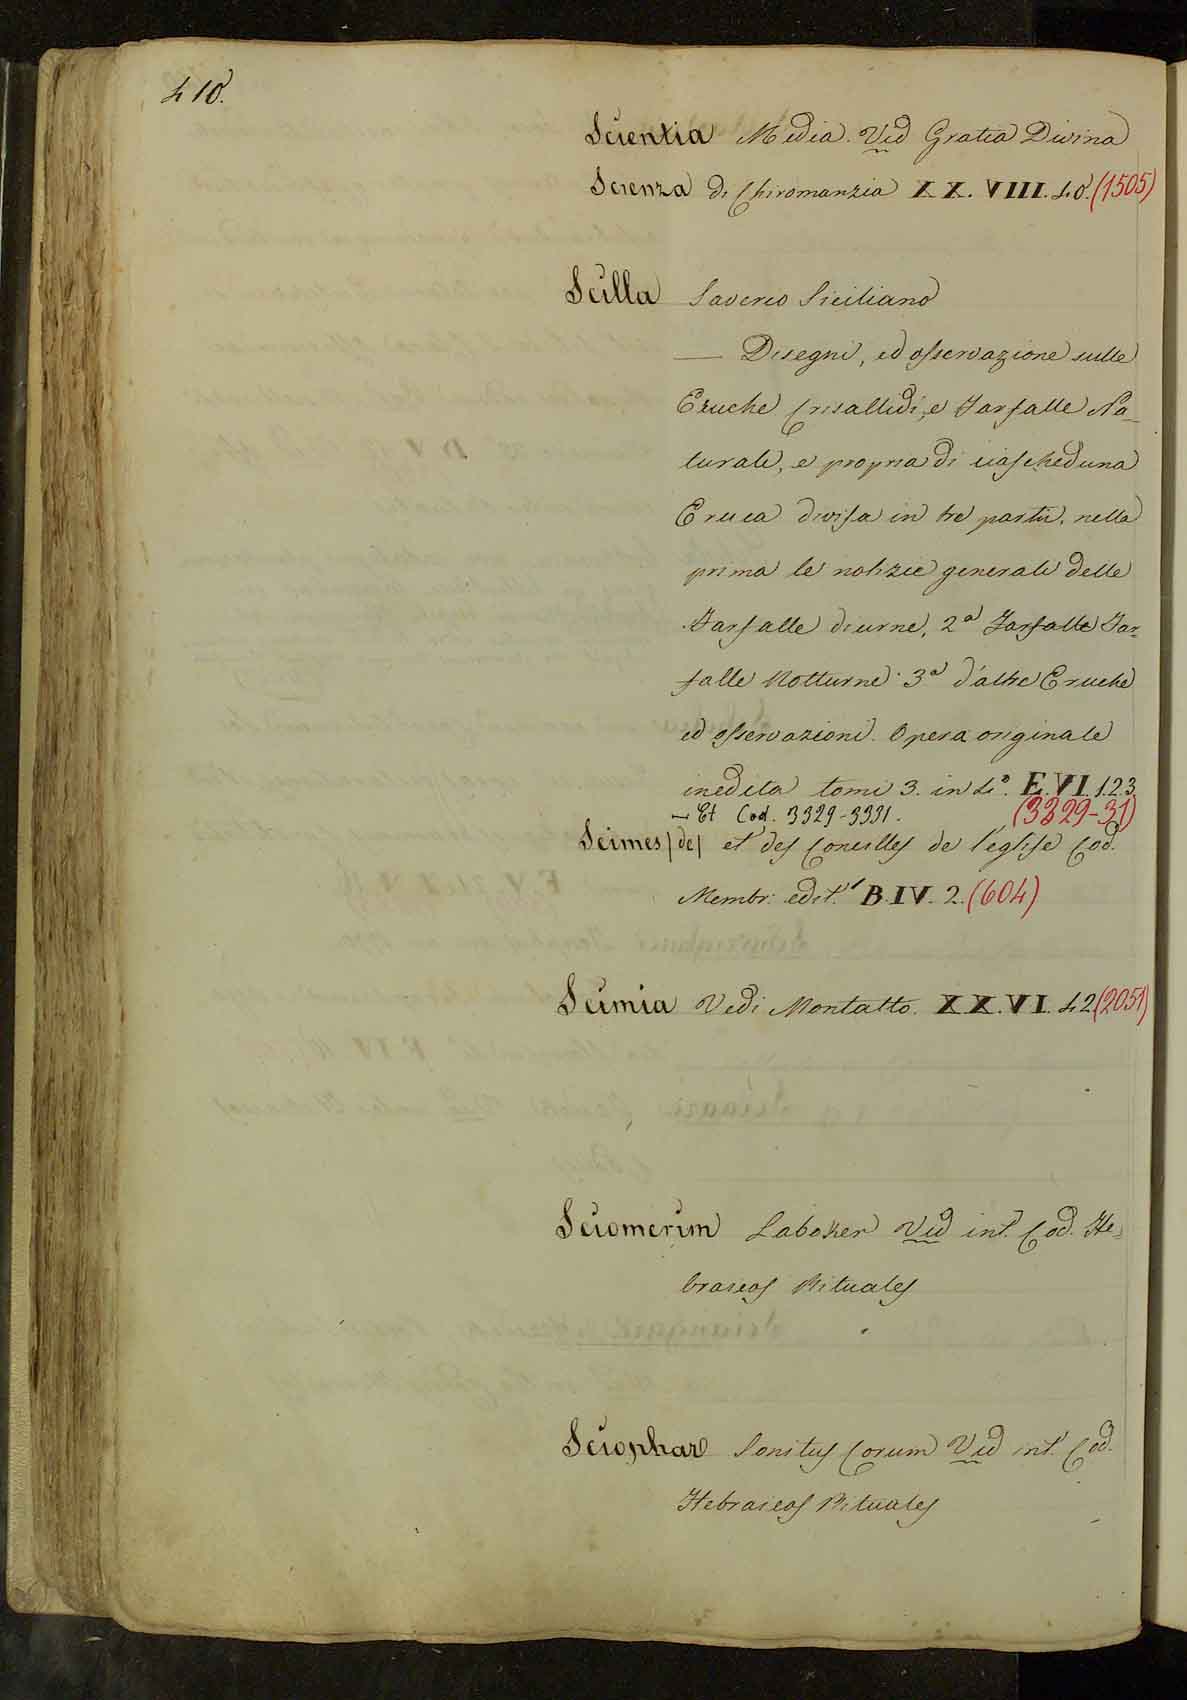 410.
Scientia Media. Vid Gratia Divina
Scienza di Chiromanzia XX. VIII. 40. (1505)
Scilla Saverio Siciliano
— Disegni, ed osservazione sulle
Eruche Crisallidi, e Farfalle Na-
turali, e propria di ciascheduna
Eruca divisa in tre parti, nella
prima le notizie generali delle
Farfalle diurne, 2a Farfalle Far-
falle Notturne 3a d'altre Eruche
ed osservazioni. Opera originale
inedita tomi 3. in 4°. E. VI. 1.2.3
— Et Cod. 3329-3331. (3329-31)
Scimes |de| et des Conciles de l'église Cod.
Membr: edit. B. IV. 2. (604)
Scimia Vedi Montalto. XX. VI. 42 (2051)
Sciomerim Laboker Vid int. Cod. He-
braicos Rituales
Sciophar Sonitus Corum Vid int. Cod.
Hebraicos Rituales